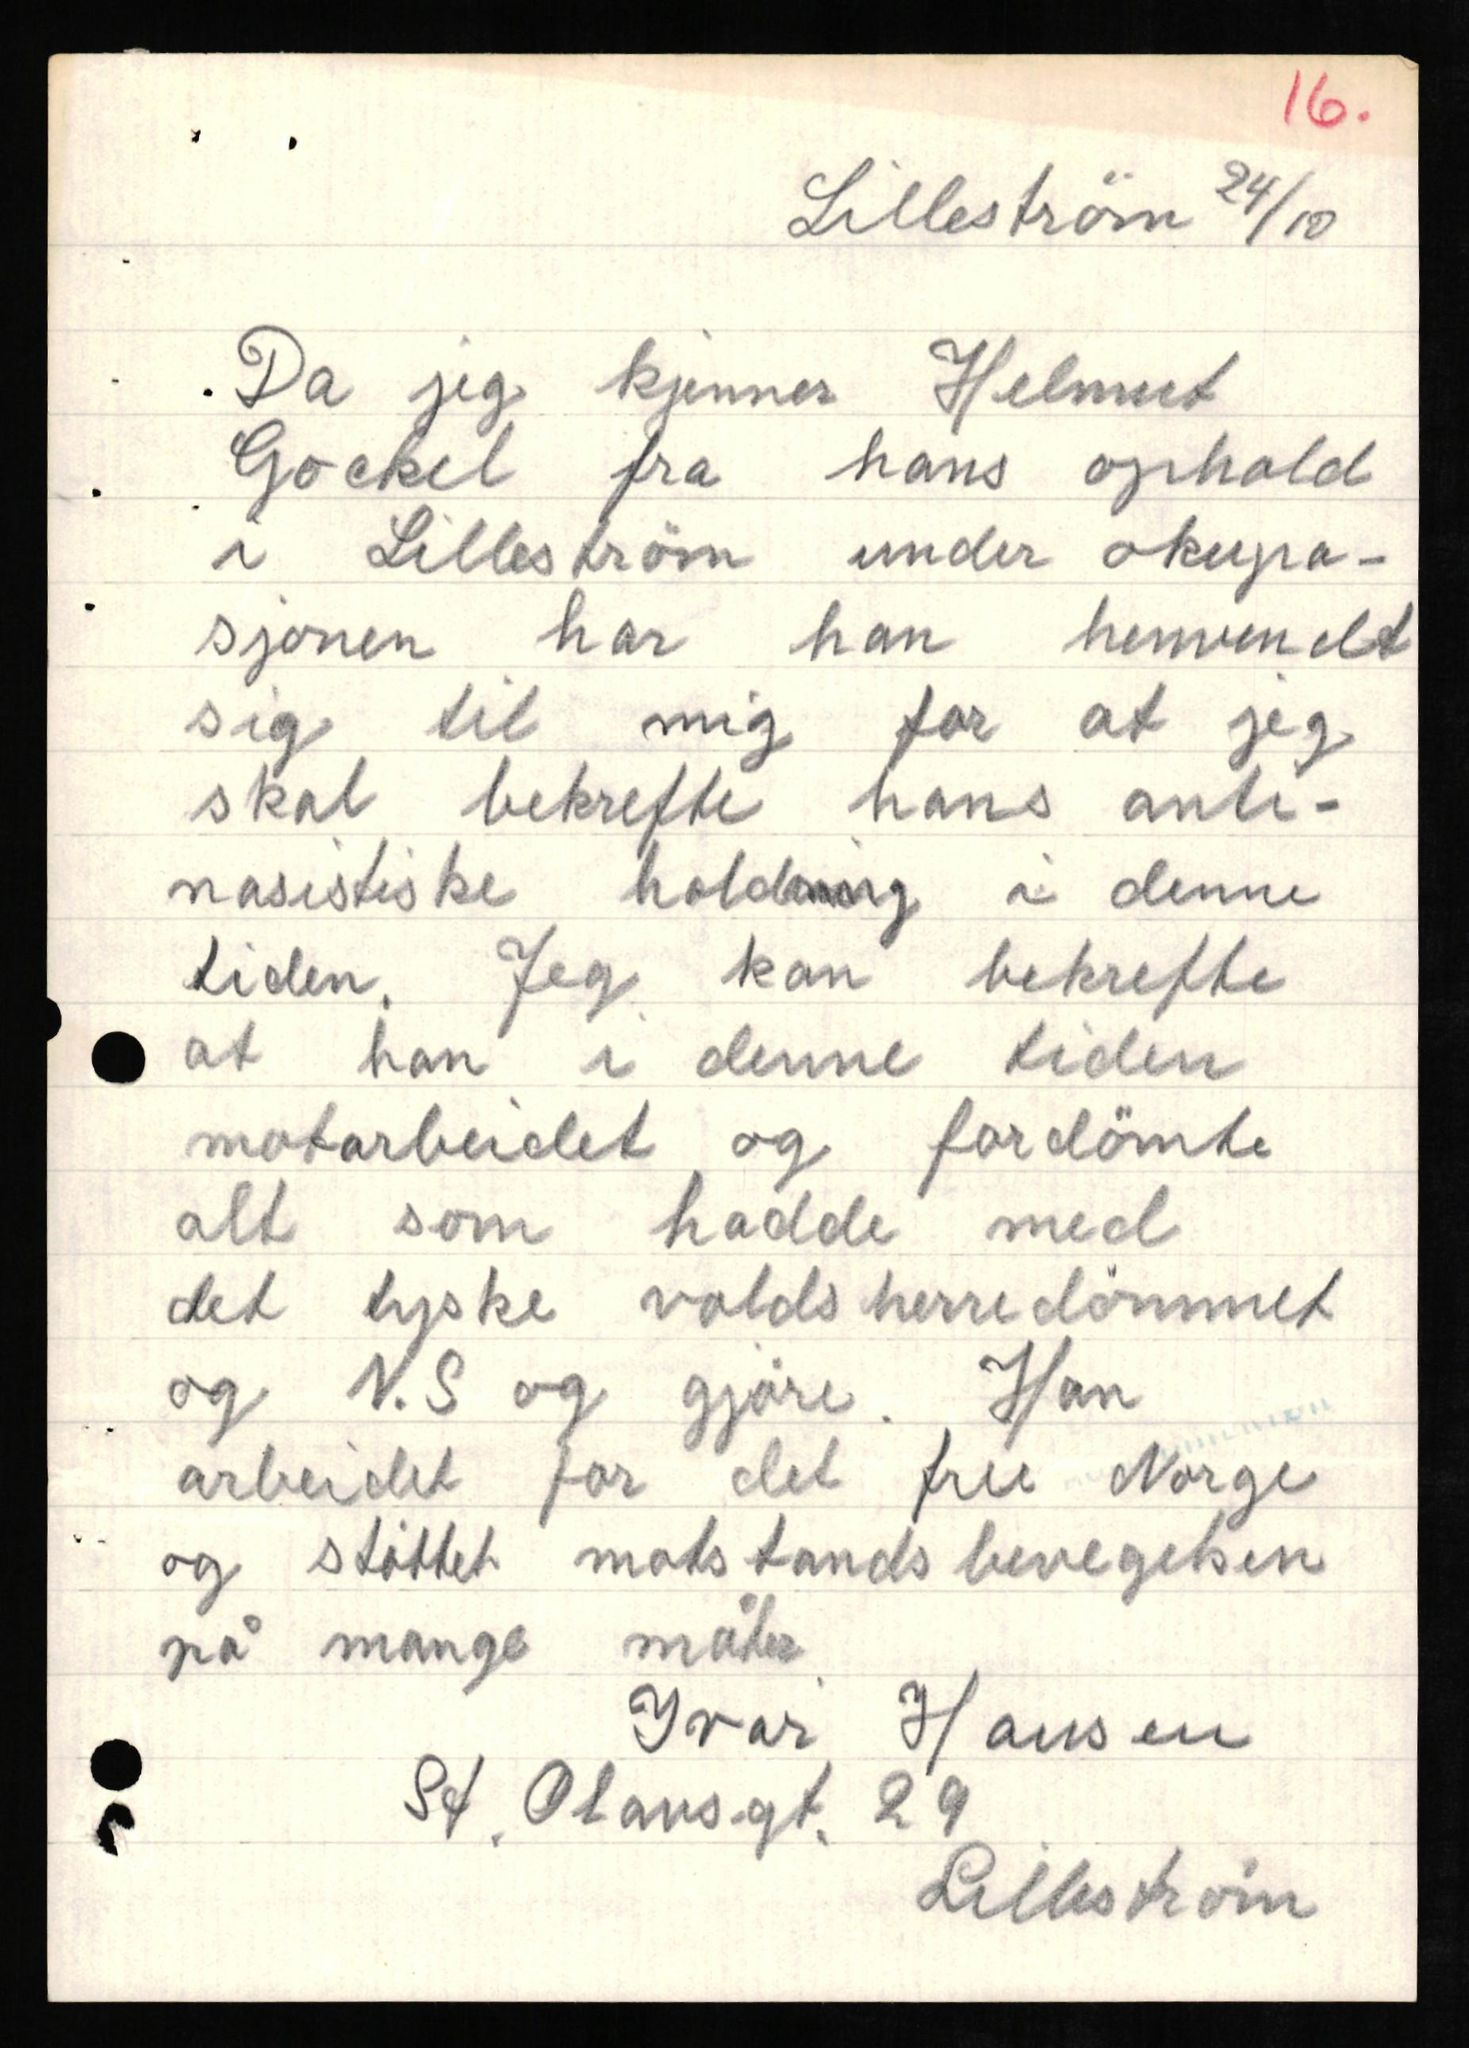 16.
Lilleström 24/10
Da jeg kjenner Helmut
Gockel fra hans ophold
i Lilleström under okupa-
sjonen har han henvendt
sig til mig for at jeg
skal bekrefte hans anti-
nasistiske holdning i denne
tiden. Jeg kan bekrefte
at han i denne tiden
motarbeidet og fordömte
alt som hadde med
det tyske voldsherredömmet
og N.S og gjöre. Han
arbeidet for det frie Norge
og stöttet motstandsbevegelsen
på mange måter
Yvar Hansen
St. Olavsgt. 29
Lilleström